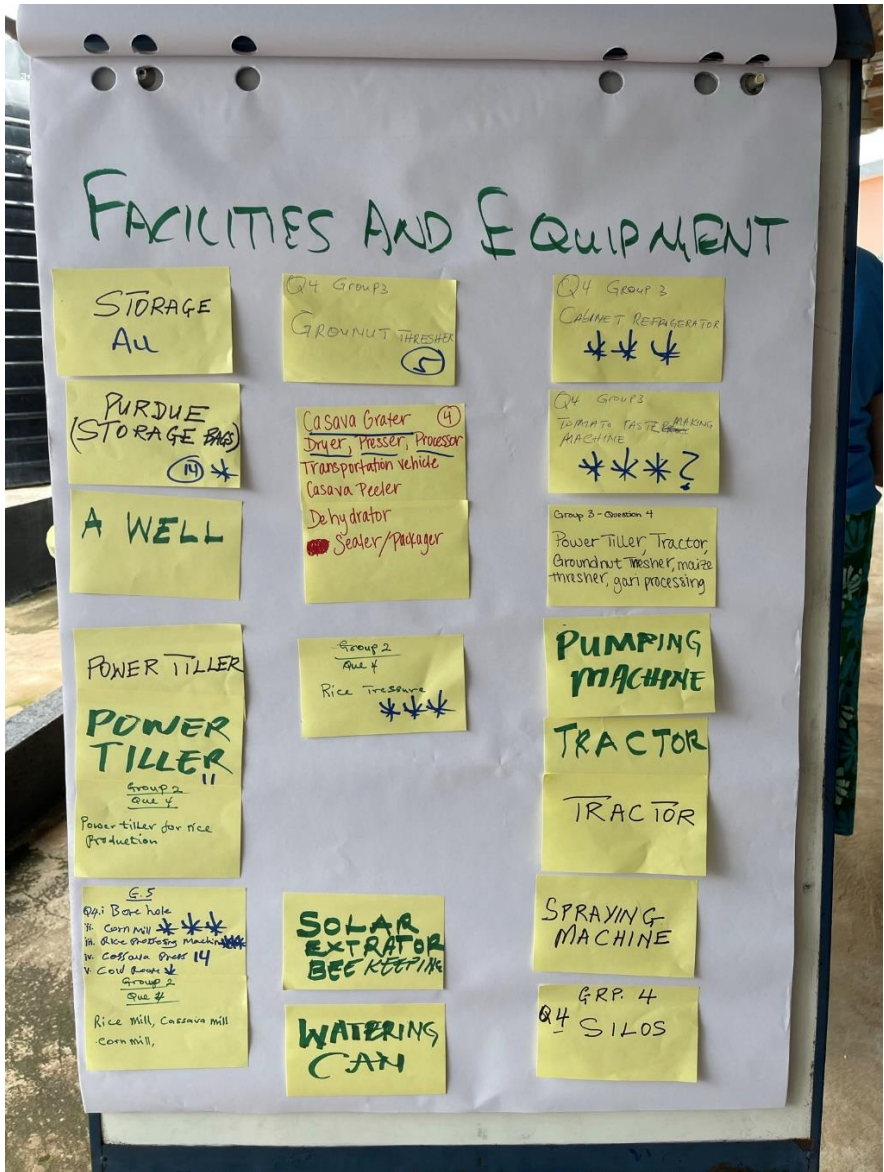 FACILITIES AND EQUIPMENT
STORAGE
All
PURDUE
(STORAGE BAGS)
14 *
A WELL
POWER TILLER
POWER
TILLER
11
Group 2
Que 4
Power tiller for rice
Production
G.5
Q4.i Bore hole
ii. Corn mill ***
iii. Rice Processing Machine ***
iv. Cassava Press 14
v. Cold Room *
Group 2
Que 4
Rice Mill, Cassava mill
Corn mill,
Q4 Group3
GROUNUT THRESHER
5
Casava Grater 4
Dryer, Presser, Processor
Transportation vehicle
Casava Peeler
Dehydrator
Sealer/Packager
Group 2
Que 4
Rice Tressure
***
SOLAR
EXTRATOR
BEE KEEPING
WATERING
CAN
Q4 Group 3
CABINET REFRIGERATOR
***
Q4 Group3
TOMATO PASTE MAKING
MACHINE
***?
Group 3 - Question 4
Power Tiller, Tractor,
Groundnut Thesher, maize
thresher, gari processing
PUMPING
MACHINE
TRACTOR
TRACTOR
SPRAYING
MACHINE
GRP. 4
Q4 SILOS